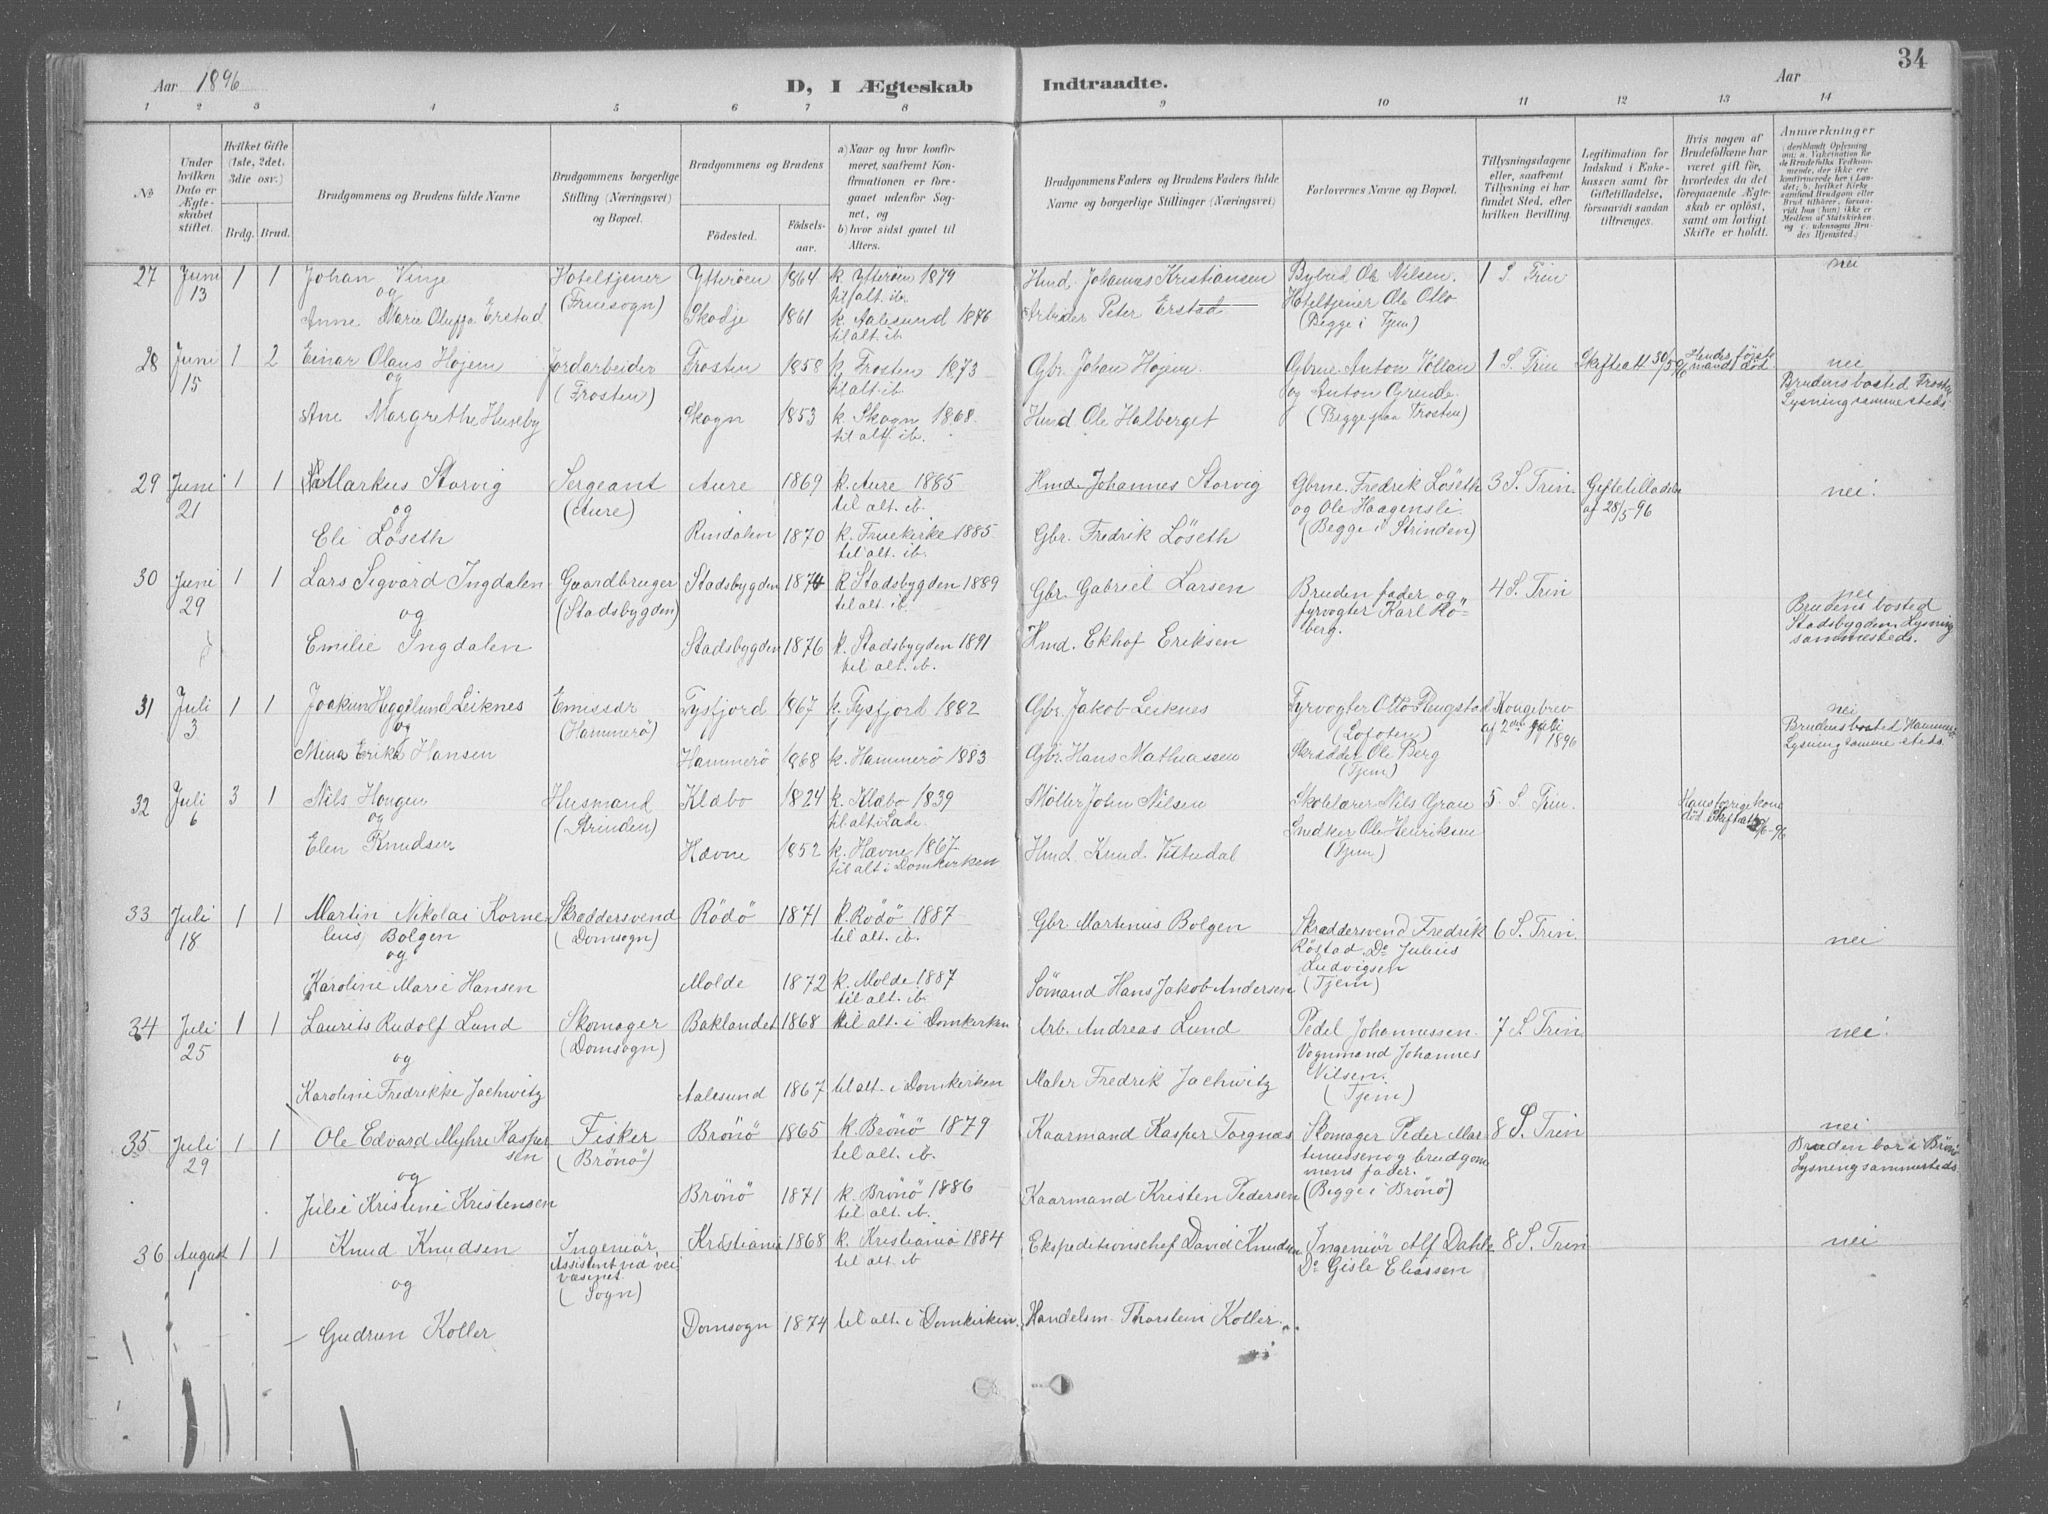 34
Aar 1896
D, I Ægteskab Indtraadte.
Aar
1 2 3 4 5 6 7 8 9 10 11 12 13 14
No
Under hvilken Dato er Ægteskabet stiftet.
Hvilket Gifte (1ste, 2det, 3die osv.)
Brdg. Brud.
Brudgommens og Brudens fulde Navne
Brudgommens borgerlige Stilling (Næringsvei) og Bopæl.
Brudgommens og Brudens
Fødested.
Fødselsaar.
a) Naar og hvor konfirmeret, saafremt Konfirmationen er foregaaet udenfor Sognet, og
b) hvor sidst gaaet til Alters.
Brudgommens Faders og Brudens Faders fulde Navne og borgerlige Stillinger (Næringsvei)
Forlovernes Navne og Bopæl.
Tillysningsdagene eller, saafremt Tillysning ei har fundet Sted, efter hvilken Bevilling.
Legitimation for Indskud i Enkekassen samt for Giftetilladelse, forsaavidt saadan tiltrænges.
Hvis nogen af Brudefolkene har været gift før, hvorledes da det foregaaende Ægteskab er opløst, samt om lovligt Skifte er holdt.
Anmærkninger
27 Juni 13 1 1 Johan Vinje Hoteltjener Ytterøen 1864 k. Ytterøen 1879 Hmd. Johannes Kristiansen Bybud Ole Nilsen. 1 S. Trin nei
og (Fruesogn) til alt. ib. Hoteltjener Ole Otto
Anne Marie Oluffa Erstad Skodje 1861 k. Aalesund 1876 Arbeider Peter Erstad (Begge i Tjem)
til alt. ib.
28 Juni 15 1 2 Einar Olaus Højem Jordarbeider Frosten 1858 k. Frosten 1873 Gbr. Johan Højem. Gbrne. Anton Vollan 1 S. Trin Skifteatt 30/5 96 Hendes første mand død nei
og (Frosten) til alt. ib. og Anton Grende. Brudens bosted Frosta
Ane Margrethe Huseby Skogn 1853 k. Skogn 1868. Hmd. Ole Halberget (Begge paa Frosten) Lysning sammesteds.
til alt. ib.
29 Juni 21 1 1 Markus Storvig Sergeant Aure 1869 k. Aure 1885 Hmd. Johannes Storvig Gbrne. Fredrik Løseth 3 S. Trin. Giftetilladelse nei.
og (Aure) til alt. ib. og Ole Haagensli af 28/5 96
Eli Løseth Rindalen 1870 k. Fruekirke 1885 Gbr. Fredrik Løseth (Begge i Strinden)
til alt. ib.
30 Juni 29 1 1 Lars Sigvard Ingdalen Gaardbruger Stadsbygden 1874 k. Stadsbygden 1889 Gbr. Gabriel Larsen Bruden fader og 4 S. Trin nei
og (Stadsbygden) til alt. ib. fyrvogter Karl Røberg. Brudens bosted
Emilie Ingdalen Stadsbygden 1876 k. Stadsbygden 1891 Hmd. Ekhof Eriksen Stadsbygden. Lysning
til alt. ib. sammesteds.
31 Juli 3 1 1 Joakim Heggelund Leiknes Emissær Tysfjord 1867 k. Tysfjord 1882 Gbr. Jakob Leiknes Fyrvogter Otto Rengstad Kongebrev nei
og (Hammerø) (Lofoten) af 2den Juli 1896 Brudens bosted Hammerø
Mina Erika Hansen Hammerø 1868 k. Hammerø 1883 Gbr. Hans Mathiassen Skrædder Ole Berg Lysning samme steds.
(Tjem)
32 Juli 6 3 1 Nils Haugen Husmand Klæbo 1824 k. Klæbo 1839 Møller John Nilsen Skolelærer Nils Gran 5. S. Trin. Hans forrige kone
og (Strinden) til alt i Lade. Snedker Ole Henriksen død Skifteatt
Elen Knudsen Hævne 1852 k. Hævne 1867. Hmd. Knud Vitsedal (Tjem)
til alt i Domkirken
33 Juli 18 1 1 Martin Nikolai Kornelius Bolgen Skræddersvend Rødø 1871 k. Rødø 1887 Gbr Martinus Bolgen Skræddersvend Fredrik 6 S. Trin. nei
og (Domsogn) til alt. ib. Røstad Do Julius Ludvigsen
Karoline Marie Hansen Molde 1872 k. Molde 1887 Sømand Hans Jakob Andersen (Tjem)
til alt. ib.
34 Juli 25 1 1 Laurits Rudolf Lund Skomager Baklandet 1868 til alt. i Domkirken Arb. Andreas Lund Pedel Johannessen. 7 S. Trin nei.
og (Domsogn) Vognmand Johannes Nilsen.
Karoline Fredrikke Jachwitz Aalesund 1867 til alt. i Domkirken Maler Fredrik Jachwitz (Tjem)
35 Juli 29 1 1 Ole Edvard Myhre Kaspersen Fisker Brønø 1865 k. Brønø 1879 Kaarmand Kasper Torgnæs Skomager Peder Mar 8 S. Trin nei
og (Brønø) til alt. ib. tinussen og brudgommens fader. Bruden bor i Brønø
Julie Kristine Kristensen Brønø 1871 k. Brønø 1886 Kaarmand Kristen Pedersen (Begge i Brønø) Lysning sammesteds.
til alt. ib.
36 August 1 1 1 Knud Knudsen Ingeniør, Kristiania 1868 k. Kristiania 1884 Ekspeditionschef David Knudsen Ingeniør Alf Dahle 8 S. Trin nei
og Assistent ved veivæsenet til alt. ib Do Gisle Eliassen
(Sogn)
Gudrun Koller Domsogn 1874 til alt. i Domkirken. Handelsm. Thorstein Koller.